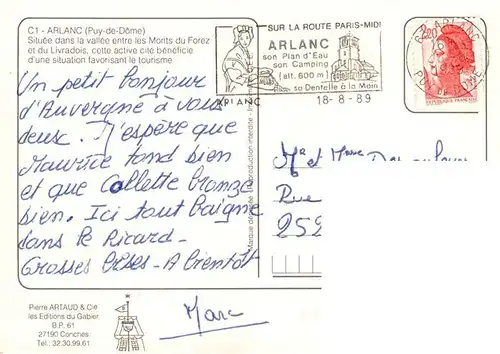 C1 - ARLANC (Puy-de-Dôme)
Située dans la vallée entre les Monts du Forez
et du Livradois, cette active cité bénéficie
d'une situation favorisant le tourisme
SUR LA ROUTE PARIS-MIDI
ARLANC
son Plan d'Eau
son Camping
(alt. 600 m)
sa Dentelle à la Main
ARLANC
18-8-89
2,20
ARLANC
Un petit bonjour
d'Auvergne à vous
deux. J'espère que
Maurice tond bien
et que Collette bronze
bien. Ici tout baigne
dans le Ricard -
Grosses Bises - A bientôt
Marc
Mr et Mme
Rue
252
Pierre ARTAUD & Cie
les Editions du Gabier
B.P. 61
27190 Conches
Tél.: 32.30.99.61